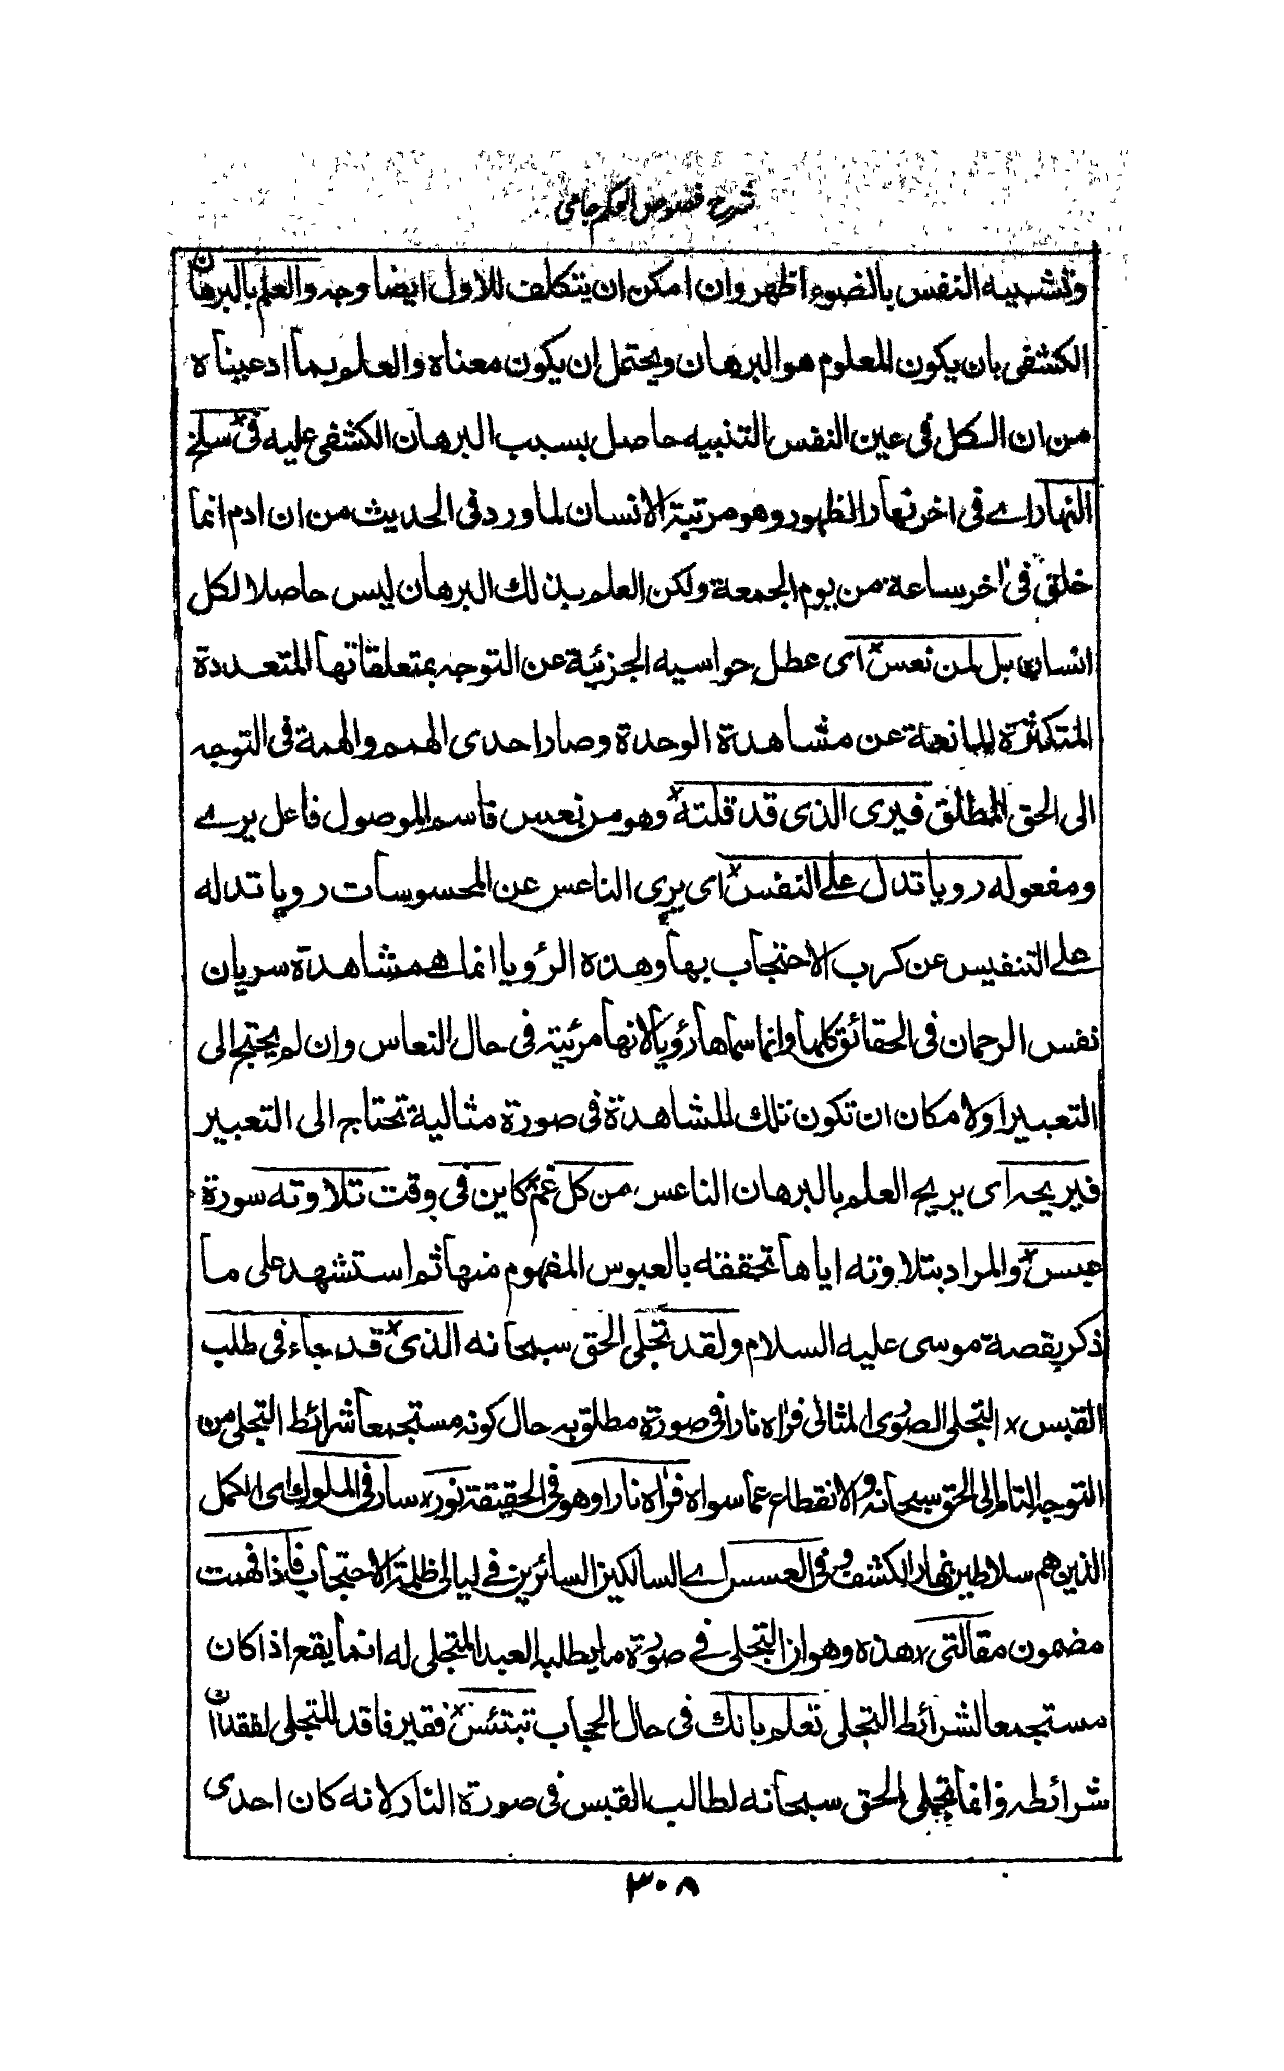 شرح فصوص الحكم جامی
وتشبيه النفس بالضوء اظهر وان امكن ان يتكلف للاول ايضا وجه والعلم بالبرهان
الكشفى بان يكون المعلوم هو البرهان ويحتمل ان يكون معناه والعلم بما ادعيناه
من ان الكل فى عين النفس التنبيه حاصل بسبب البرهان الكشفى عليه فى سلخ
النهار اے فى اخر نهار الظهور وهو مرتبة الانسان لما ورد فى الحديث من ان ادم انما
خلق فى اخر ساعة من يوم الجمعة ولكن العلم بذلك البرهان ليس حاصلا لكل
انسان بل لمن نعس اى عطل حواسيه الجزئية عن التوجه بمتعلقاتها المتعددة
المتكثرة المانعة عن مشاهدة الوحدة وصار احدى الهمم والهمة فى التوجه
الى الحق المطلق فيرى الذى قد قلته وهو من نعس فاسم الموصول فاعل يرے
ومفعوله رويا تدل على النفس اى يرى الناعس عن المحسوسات رويا تدله
على التنفيس عن كرب الاحتجاب بها وهذه الرؤيا انما هے مشاهدة سريان
نفس الرحمان فى الحقائق كلها وانما سماها رؤيا لانها مرئية فى حال النعاس وان لم يحتج الى
التعبير او لامكان ان تكون تلك المشاهدة فى صورة مثالية تحتاج الى التعبير
فيريحه اى يريح العلم بالبرهان الناعس من كل غم كاين فى وقت تلاوته سورة
عبس والمراد بتلاوته اياها تحققه بالعبوس المفهوم منها ثم استشهد على ما
ذكر بقصة موسى عليه السلام ولقد تجلى الحق سبحانه الذى قد جاء فى طلب
القبس التجلى الصورى المثالى فراه نارا فى صورة مطلوبه حال كونه مستجمعا شرائط التجلى من
التوجه التام الى الحق سبحانه والانقطاع عما سواه فراه نارا وهو فى الحقيقة نور سار فى الملوك اى الكمل
الذين هم سلاطين نهار الكشف وفى العسس اے السالكين السائرين فے ليالى ظلمة الاحتجاب فاذا فهمت
مضمون مقالتى هذه وهو ان التجلى فے صورة ما يطلبه العبد المتجلى له انما يقع اذا كان
مستجمعا لشرائط التجلى تعلم بانك فى حال الحجاب تبتئس فقير فاقد للتجلى لفقدان
شرائطه وانما تجلى الحق سبحانه لطالب القبس فى صورة النار لانه كان احدى
٣٠٨